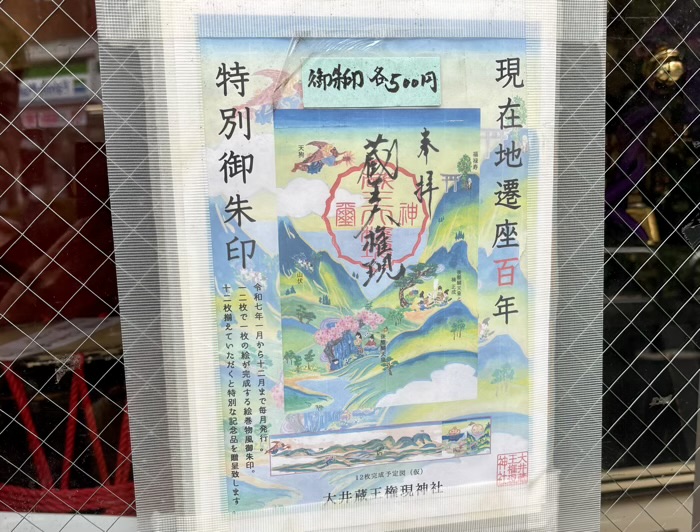 現在地遷座百年
御朱印 各500円
特別御朱印
奉拝
蔵王大権現
天狗
山伏
令和七年一月から十二月まで毎月発行。
一二枚で一枚の絵が完成する絵巻物風御朱印。
十二枚揃えていただくと特別な記念品を贈呈致します
12枚完成予定図(仮)
大井蔵王権現神社